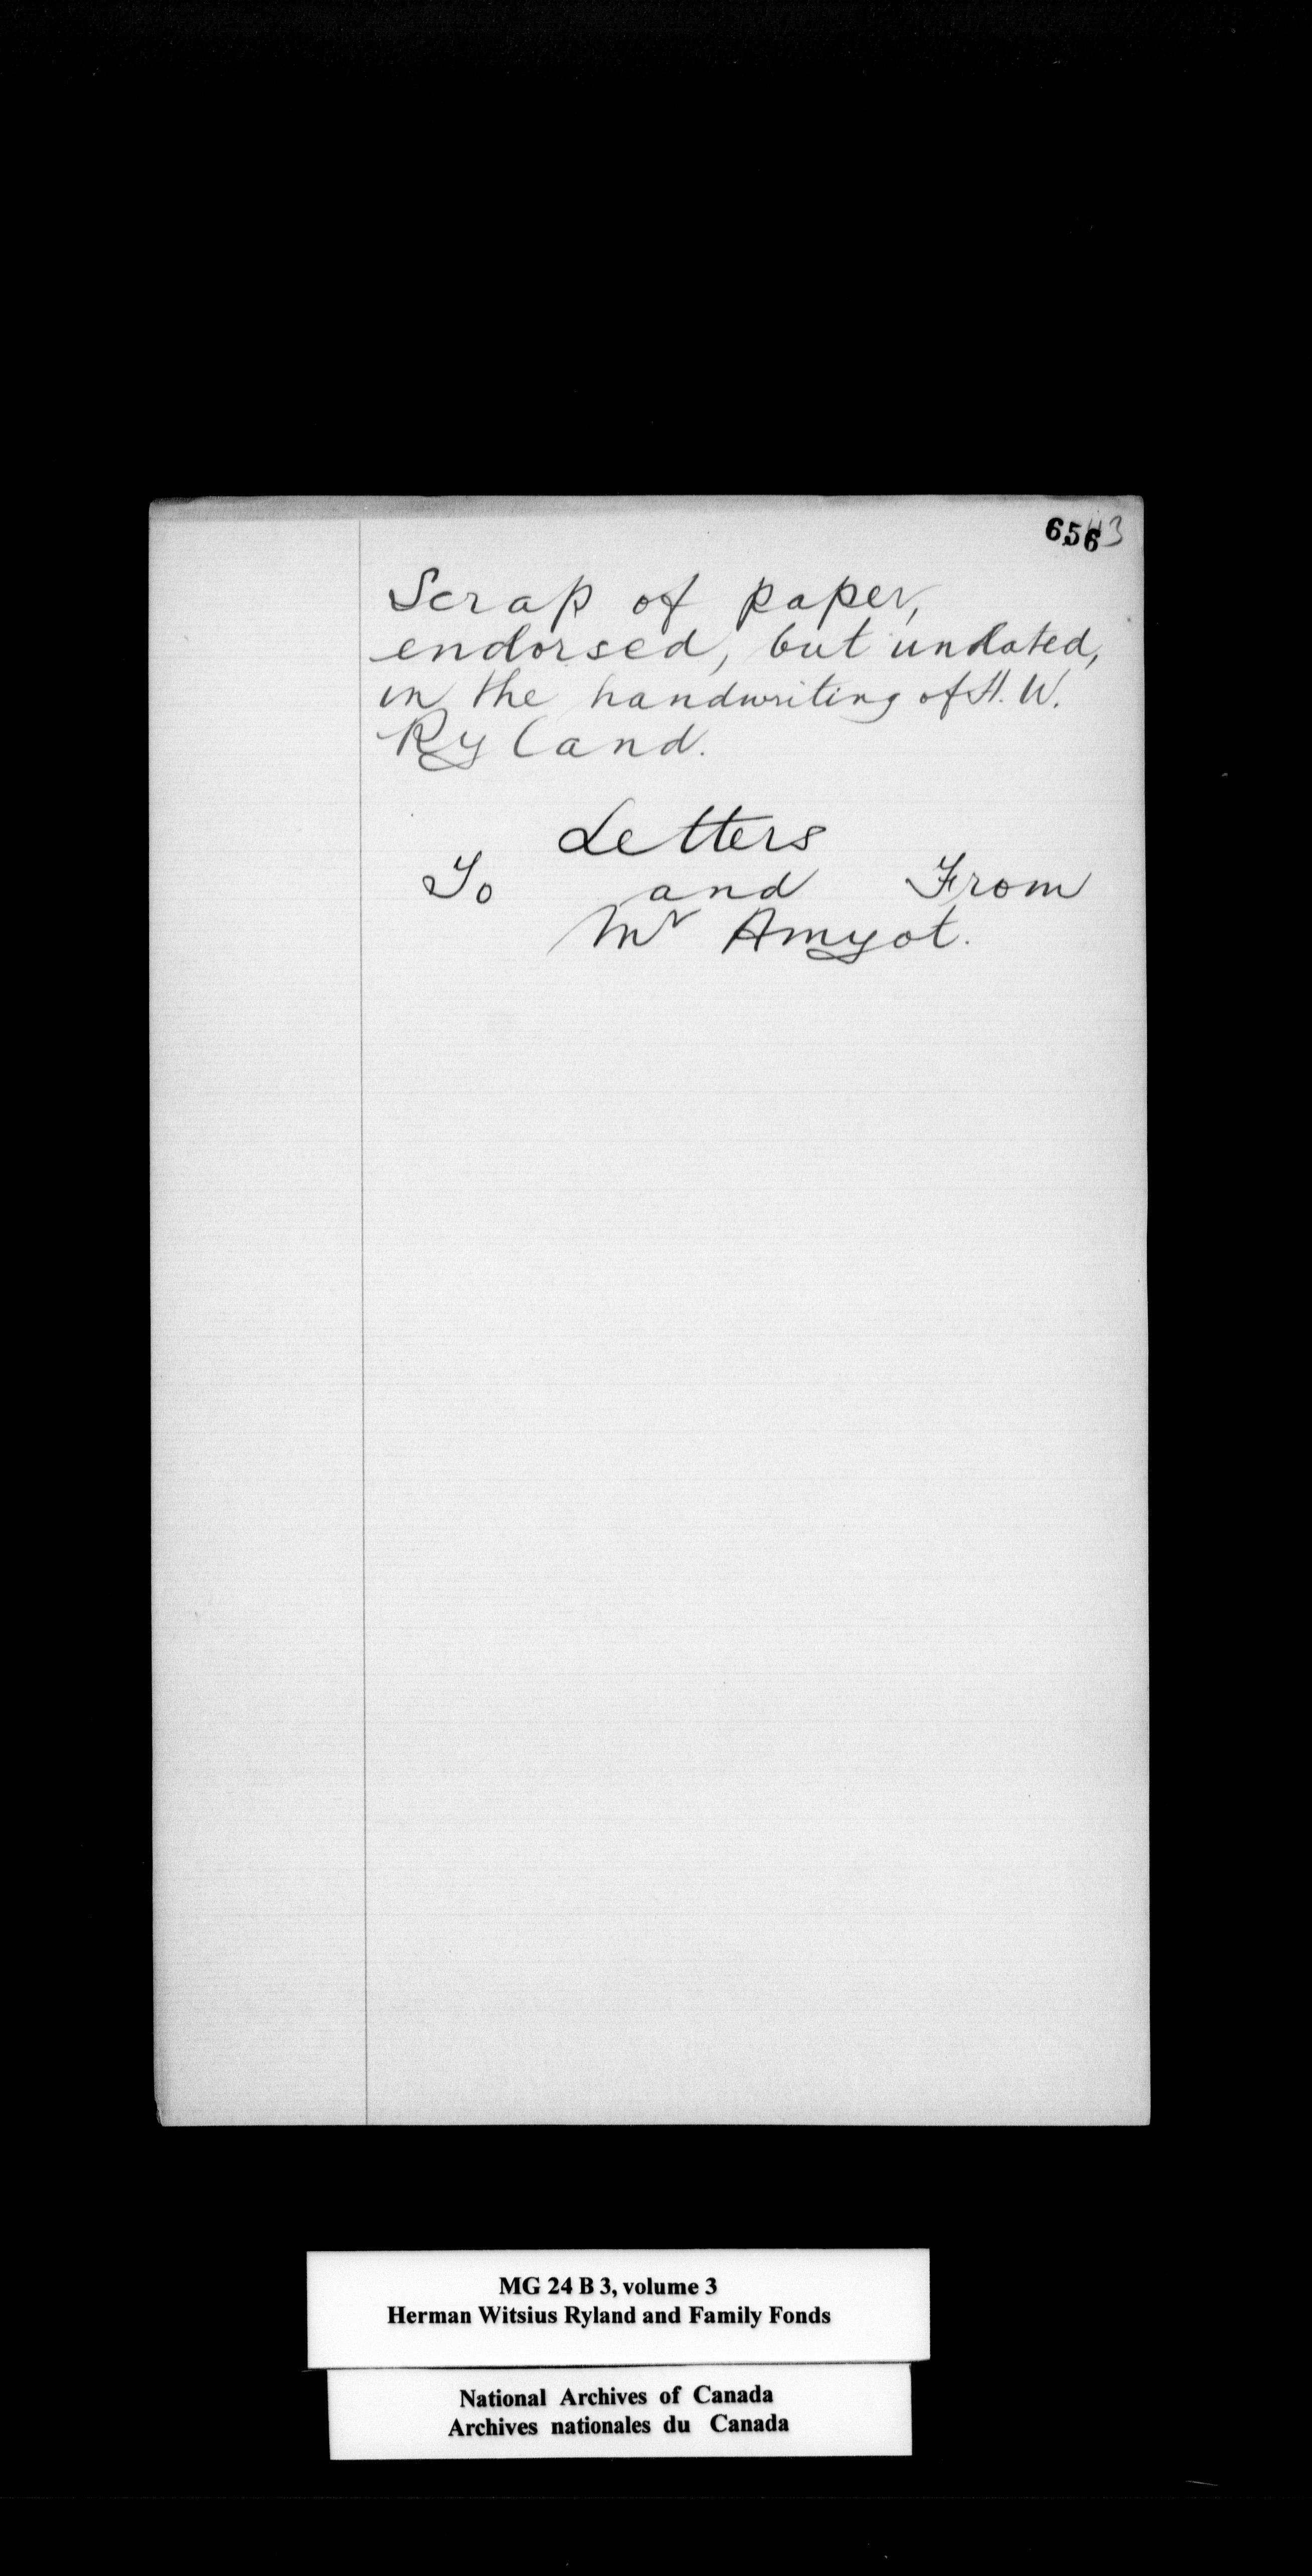 656
Scrap of paper,
endorsed, but undated,
in the handwriting of H. W.
Ryland.
Letters
To and From
Mr Amyot.
MG 24 B 3, volume 3
Herman Witsius Ryland and Family Fonds
National Archives of Canada
Archives nationales du Canada